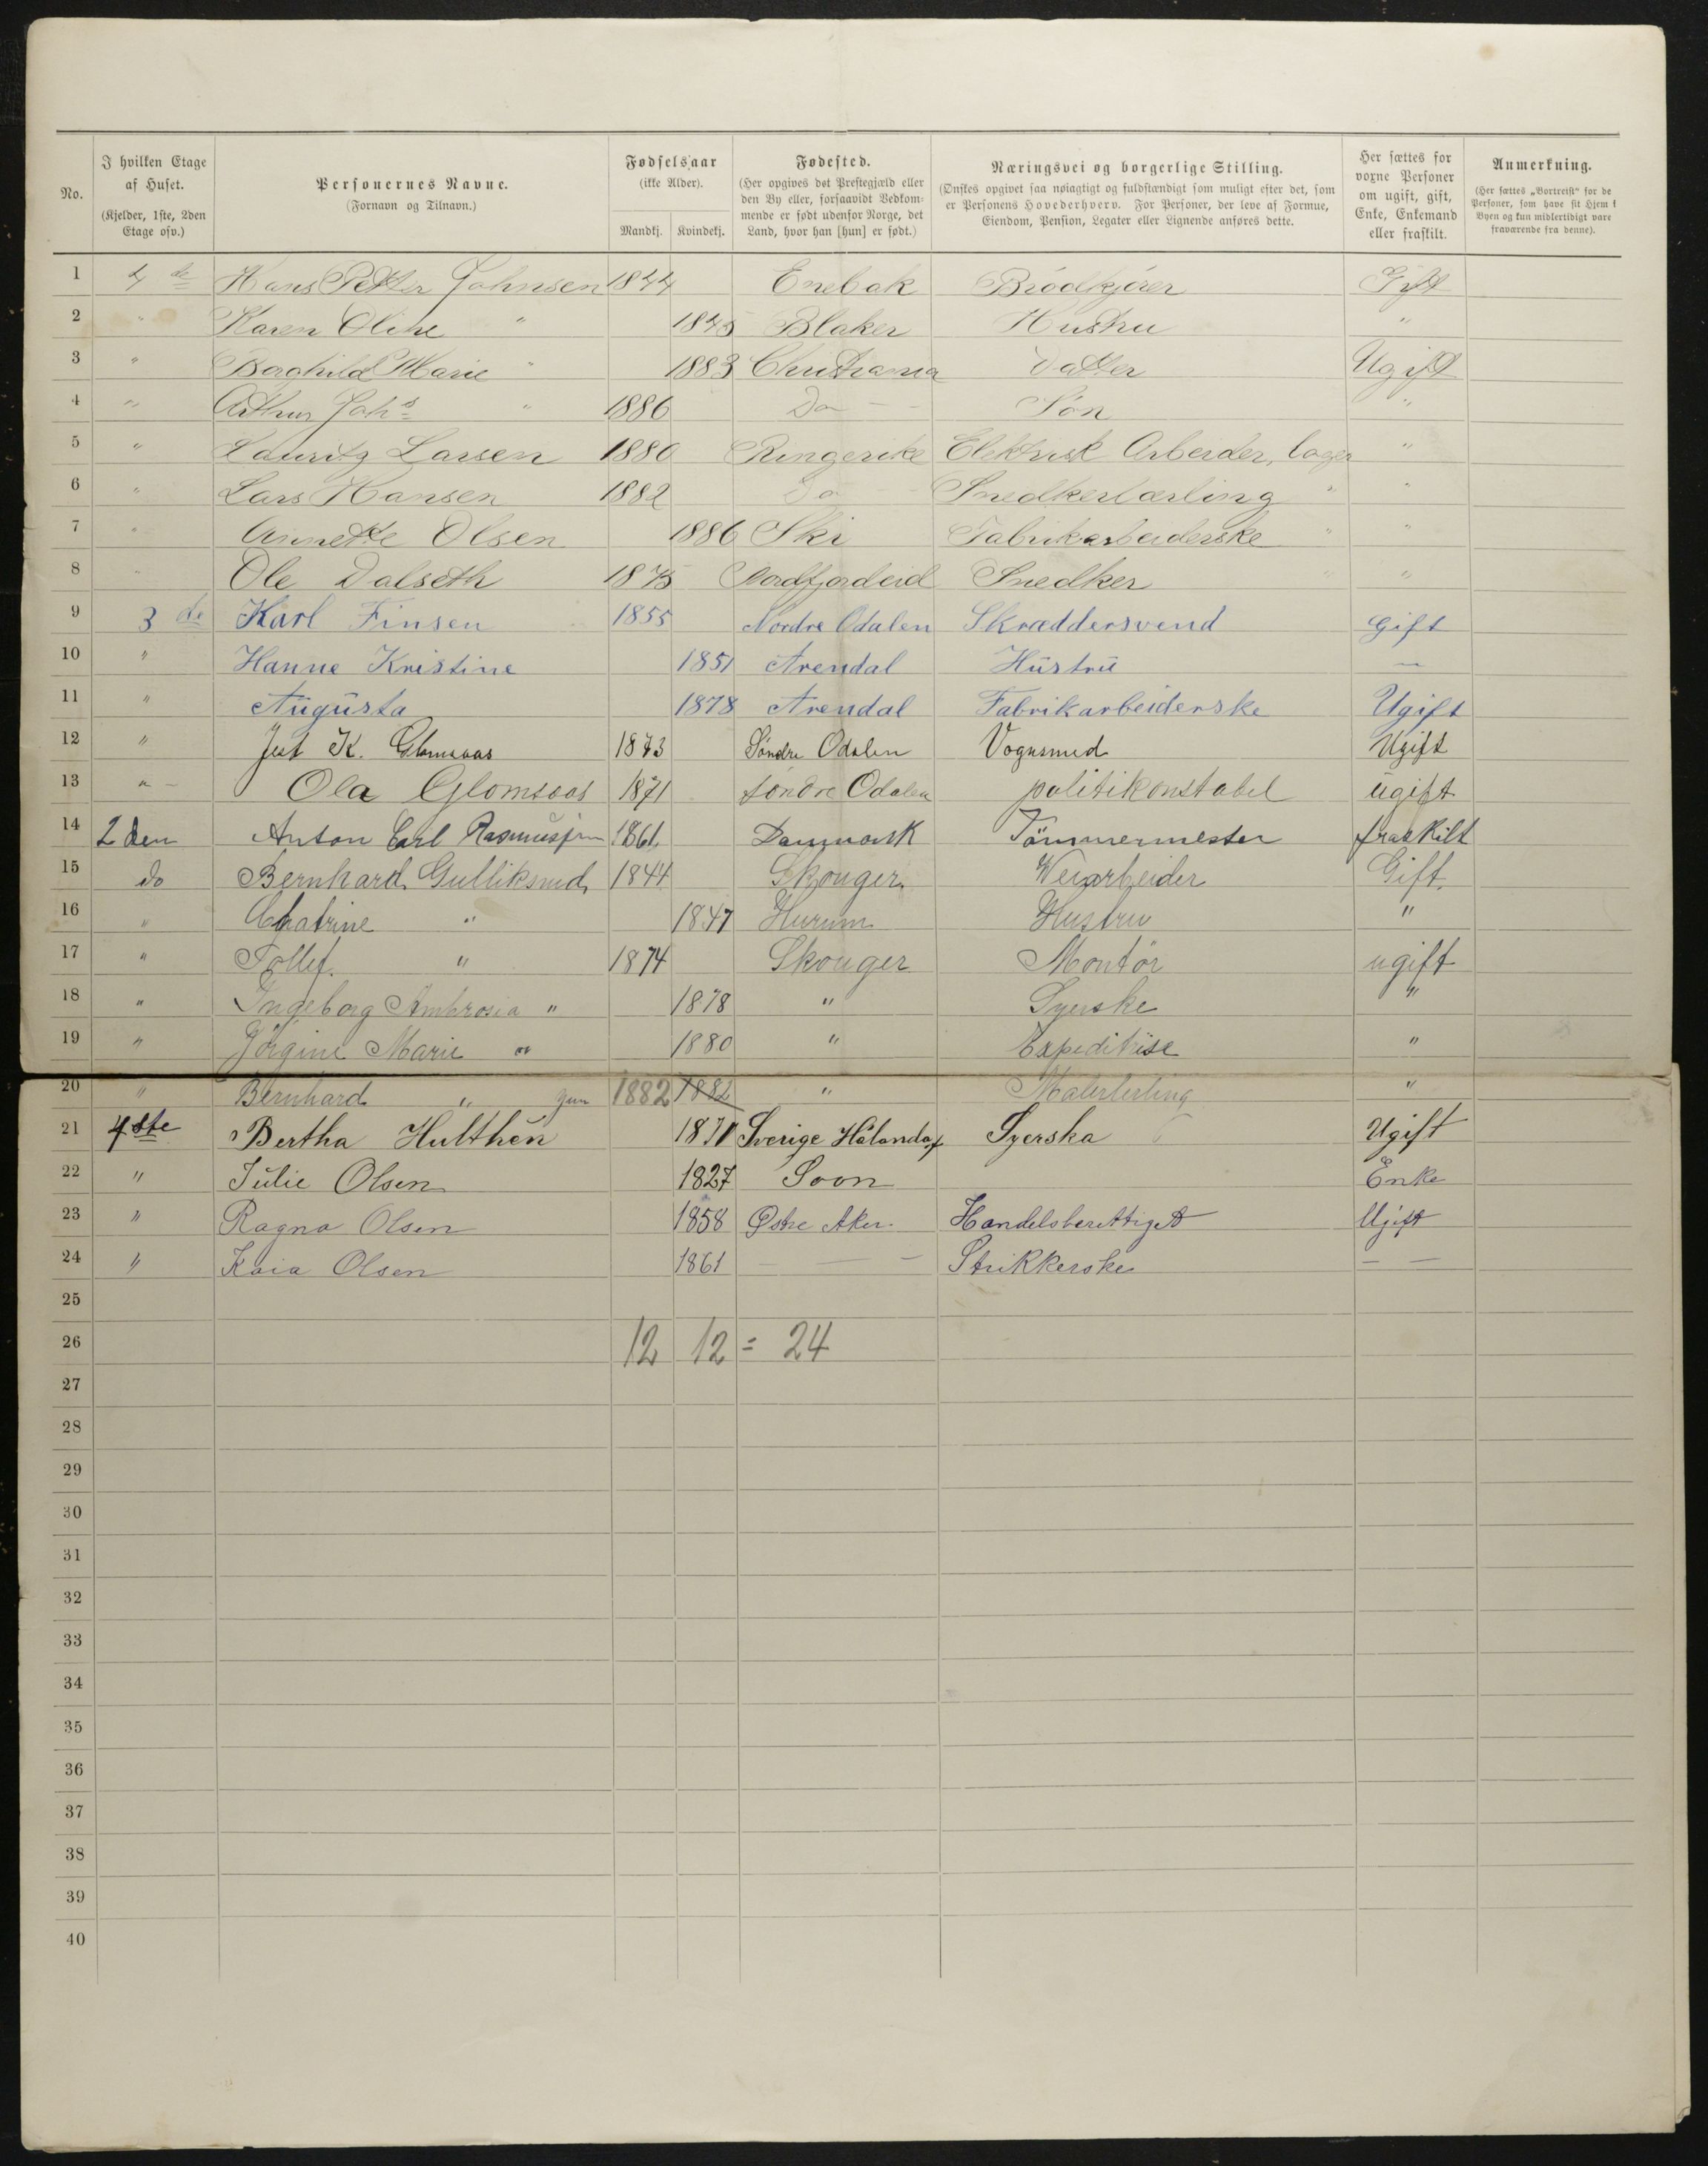 No. I hvilken Etage af Huset. (Kjelder, 1ste, 2den Etage osv.) Personernes Navne. (Fornavn og Tilnavn.) Fødselsaar (ikke Alder). Mandkj. Kvindekj. Fødested. (Her opgives det Prestegjæld eller den By eller, forsaavidt Vedkommende er født udenfor Norge, det Land, hvor han [hun] er født.) Næringsvei og borgerlige Stilling. (Ønskes opgivet saa nøiagtigt og fuldstændigt som muligt efter det, som er Personens Hovederhverv. For Personer, der leve af Formue, Eiendom, Pension, Legater eller Lignende anføres dette. Her sættes for voxne Personer om ugift, gift, Enke, Enkemand eller fraskilt. Anmerkning. (Her sættes „Bortreist“ for de Personer, som have sit Hjem i Byen og kun midlertidigt vare fraværende fra denne).
1 4 de Hans Petter Johnsen 1844 Enebak Brödkjörer Gift
2 " Karen Oline " 1845 Blaker Hustru "
3 " Borghild Marie " 1883 Christiania Datter Ugift
4 " Arthur Joh's " 1886 Do — Sön "
5 " Lauritz Larsen 1880 Ringerike Elektrisk Arbeider, loger "
6 " Lars Hansen 1882 Do — Snedkerlærling " "
7 " Annette Olsen 1886 Ski Fabrikarbeiderske " "
8 " Ole Dalseth 1875 Nordfjordeid Snedker " "
9 3 de Karl Finsen 1855 Nordre Odalen Skræddersvend Gift
10 " Hanne Kristine 1851 Arendal Hustru —
11 " Augusta 1878 Arendal Fabrikarbeiderske Ugift
12 " K. Glomsaas 1873 Söndre Odalen Vognsmed Ugift
13 " Ola Glomsaas 1871 söndre Odalen politikonstabel ugift
14 2den Anton Carl Rasmussen 1861 Danmark Tömmermester fraskilt
15 do Bernhard Gulliksrud 1844 Skouger Veiarbeider Gift
16 " Chatrine " 1847 Hurum Hustru "
17 " Tollef. " 1874 Skouger Montör ugift
18 " Ingeborg Ambrosia " 1878 " Syerske "
19 " Jörgine Marie " 1880 " Expeditrise "
20 " Bernhard " jun 1882 1882 " Malerlerling "
21 4ste Bertha Hulthén Sverige Syerska Ugift
22 " Julie Olsen 1827 Soon Enke
23 " Ragna Olsen 1858 Östre Aker Handelsberettiget Ugift
24 " Kaia Olsen 1861 — — Strikkerske — —
25
26 12 12 = 24
27
28
29
30
31
32
33
34
35
36
37
38
39
40